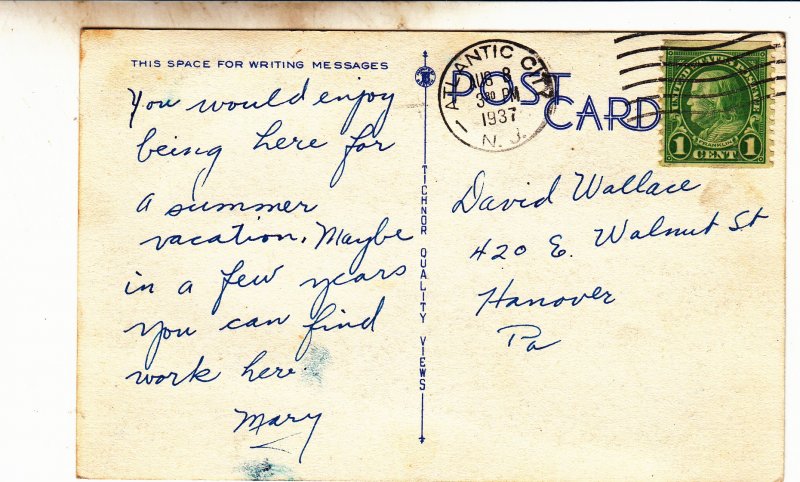 THIS SPACE FOR WRITING MESSAGES
You would enjoy
being here for
a summer
vacation. Maybe
in a few years
you can find
work here.
Mary
TICHNOR QUALITY VIEWS
POST
CARD
ATLANTIC CITY
AUG 8
3 30 PM
1937
N. J.
UNITED STATES POSTAGE
FRANKLIN
1 CENT 1
David Wallace
420 E. Walnut St
Hanover
Pa